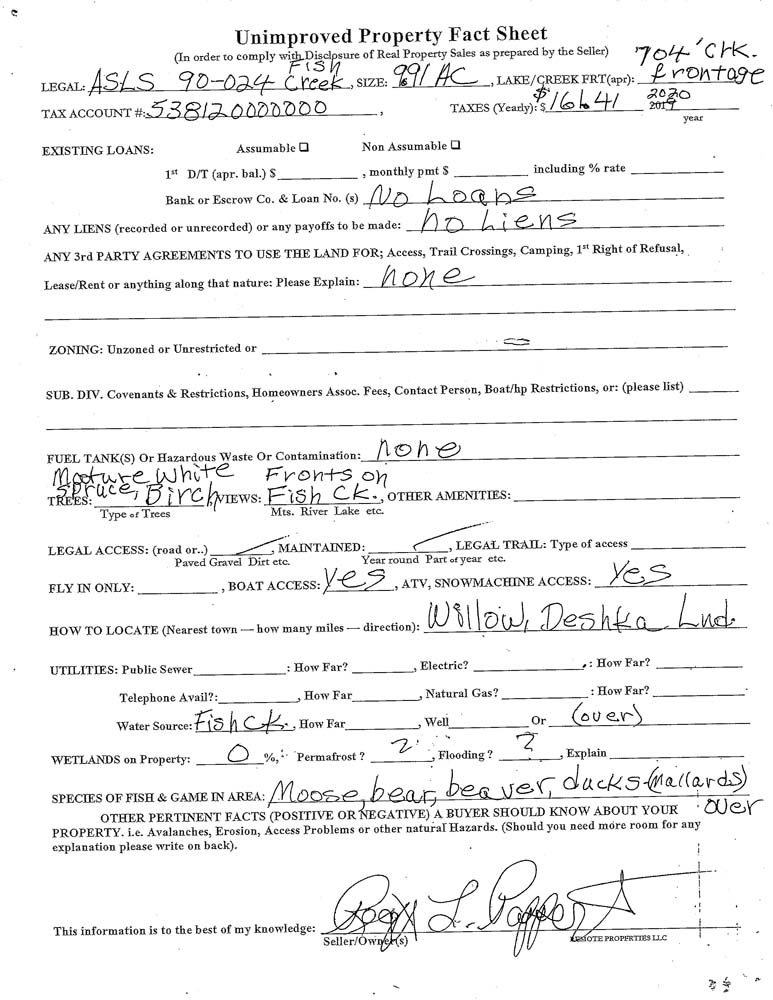 Unimproved Property Fact Sheet
(In order to comply with Disclosure of Real Property Sales as prepared by the Seller)
704' Crk. frontage
LEGAL: ASLS 90-024 Fish Creek, SIZE: 9.91 AC, LAKE/CREEK FRT(apr):
TAX ACCOUNT #: 538120000000, TAXES (Yearly): $ $16.41 2020 2019
year
EXISTING LOANS: Assumable ☐ Non Assumable ☐
1st D/T (apr. bal.) $ , monthly pmt $ including % rate
Bank or Escrow Co. & Loan No. (s) No Loans
ANY LIENS (recorded or unrecorded) or any payoffs to be made: no Liens
ANY 3rd PARTY AGREEMENTS TO USE THE LAND FOR; Access, Trail Crossings, Camping, 1st Right of Refusal,
Lease/Rent or anything along that nature: Please Explain: none
ZONING: Unzoned or Unrestricted or
SUB. DIV. Covenants & Restrictions, Homeowners Assoc. Fees, Contact Person, Boat/hp Restrictions, or: (please list)
FUEL TANK(S) Or Hazardous Waste Or Contamination: none
Mature White Fronts on
TREES: Spruce, Birch VIEWS: Fish Ck., OTHER AMENITIES:
Type of Trees Mts. River Lake etc.
LEGAL ACCESS: (road or..) , MAINTAINED: , LEGAL TRAIL: Type of access
Paved Gravel Dirt etc. Year round Part of year etc.
FLY IN ONLY: , BOAT ACCESS: Yes, ATV, SNOWMACHINE ACCESS: Yes
HOW TO LOCATE (Nearest town — how many miles — direction): Willow, Deshka Lnd.
UTILITIES: Public Sewer : How Far? , Electric? : How Far?
Telephone Avail?: , How Far , Natural Gas? : How Far?
Water Source: Fish Ck., How Far , Well Or (over)
WETLANDS on Property: 0 %, Permafrost ? ?, Flooding ? ?, Explain
SPECIES OF FISH & GAME IN AREA: Moose, bear, beaver, ducks-(mallards)
over
OTHER PERTINENT FACTS (POSITIVE OR NEGATIVE) A BUYER SHOULD KNOW ABOUT YOUR
PROPERTY. i.e. Avalanches, Erosion, Access Problems or other natural Hazards. (Should you need more room for any
explanation please write on back).
This information is to the best of my knowledge:
Seller/Owner(s) REMOTE PROPERTIES LLC